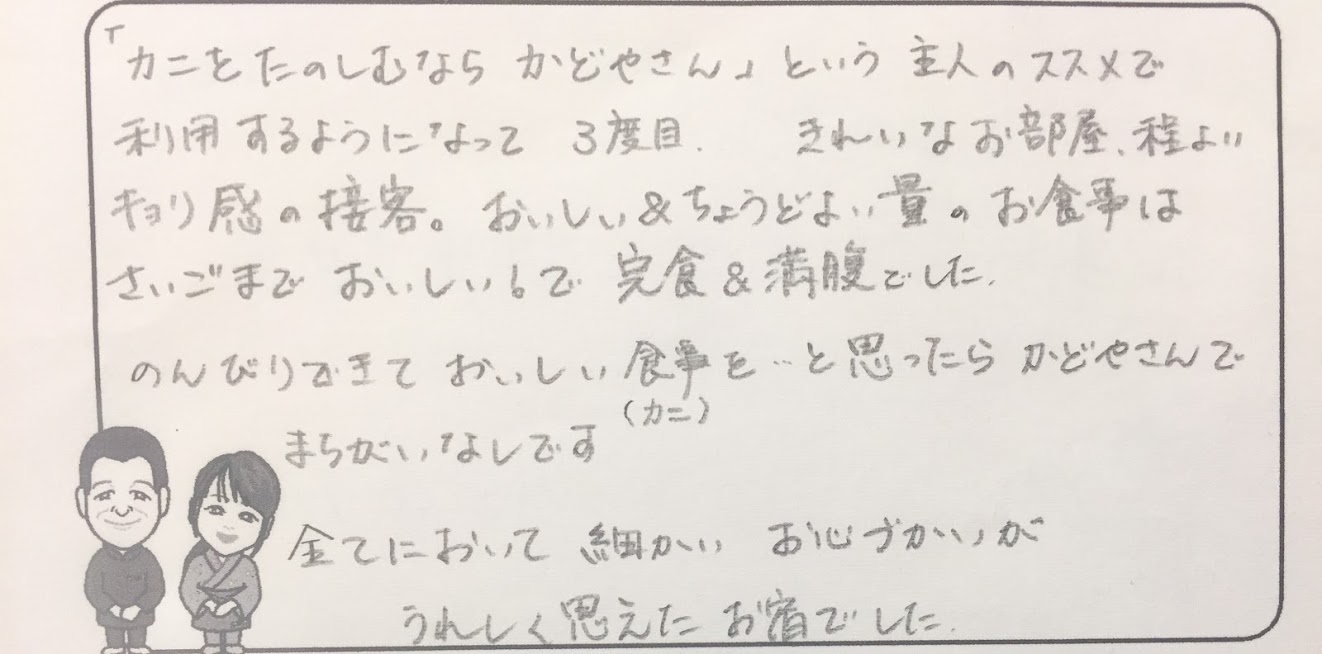 「カニをたのしむなら かどやさん」という 主人のススメで
利用するようになって 3度目. きれいなお部屋、程よい
キョリ感の接客。おいしい&ちょうどよい量のお食事は
さいごまで おいしい!で 完食&満腹でした.
のんびりできて おいしい食事を…と思ったら かどやさんで
(カニ)
まちがいなしです
全てにおいて 細かい お心づかいが
うれしく思えた お宿でした.